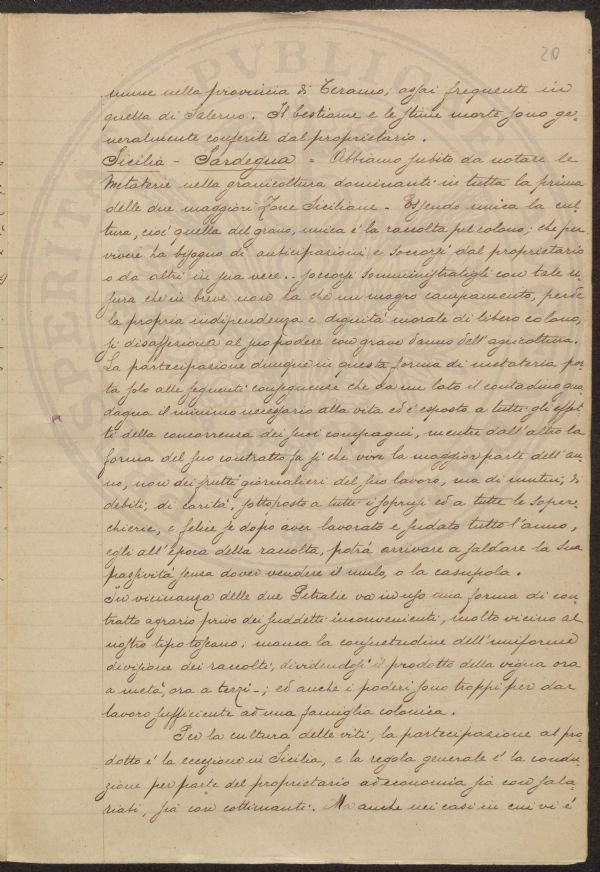 20
mune nella provincia di Teramo; assai frequente in
quella di Salerno. Il bestiame e le stime morte sono ge-
neralmente conferite dal proprietario.
Sicilia - Sardegna = Abbiamo subito da notare le
Metaterie nella granicoltura dominanti in tutta la prima
delle due maggiori Zone Siciliane - Essendo unica la cul-
tura, cioè quella del grano, unica è la raccolta pel colono; che per
vivere ha bisogno di anticipazioni e soccorsi dal proprietario
o da altri in sua vece. - Soccorsi somministratigli con tale u-
sura che in breve non ha che un magro campamento, perde
la propria indipendenza e dignità morale di libero colono,
si disaffeziona al suo podere con gran danno dell'agricoltura.
La partecipazione dunque in questa forma di metateria por-
ta solo alle seguenti conseguenze che da un lato il contadino gua-
dagna il minimo necessario alla vita ed è esposto a tutti gli effet-
ti della concorrenza dei suoi compagni, mentre dall'altro la
forma del suo contratto fa sì che vive la maggior parte dell'an-
no, non dei frutti giornalieri del suo lavoro, ma di mutui, di
debiti, di carità, sottoposto a tutti i soprusi ed a tutte le soper-
chierie, e felice se dopo aver lavorato e sudato tutto l'anno,
egli all'epoca della raccolta, potrà arrivare a saldare la sua
passività senza dover vendere il mulo, o la casupola.
In vicinanza delle due Petralie va in uso una forma di con-
tratto agrario privo dei suddetti inconvenienti, molto vicino al
nostro tipo toscano; manca la consuetudine dell'uniforme
divisione dei raccolti, dividendosi il prodotto della vigna ora
a metà, ora a terzi -; ed anche i poderi sono troppi per dar
lavoro sufficiente ad una famiglia colonica.
Per la cultura delle viti, la partecipazione al pro-
dotto è la eccezione in Sicilia, e la regola generale è la condu-
zione per parte del proprietario ad economia sia con sala-
riati, sia con cottimanti. Ma anche nei casi in cui vi è